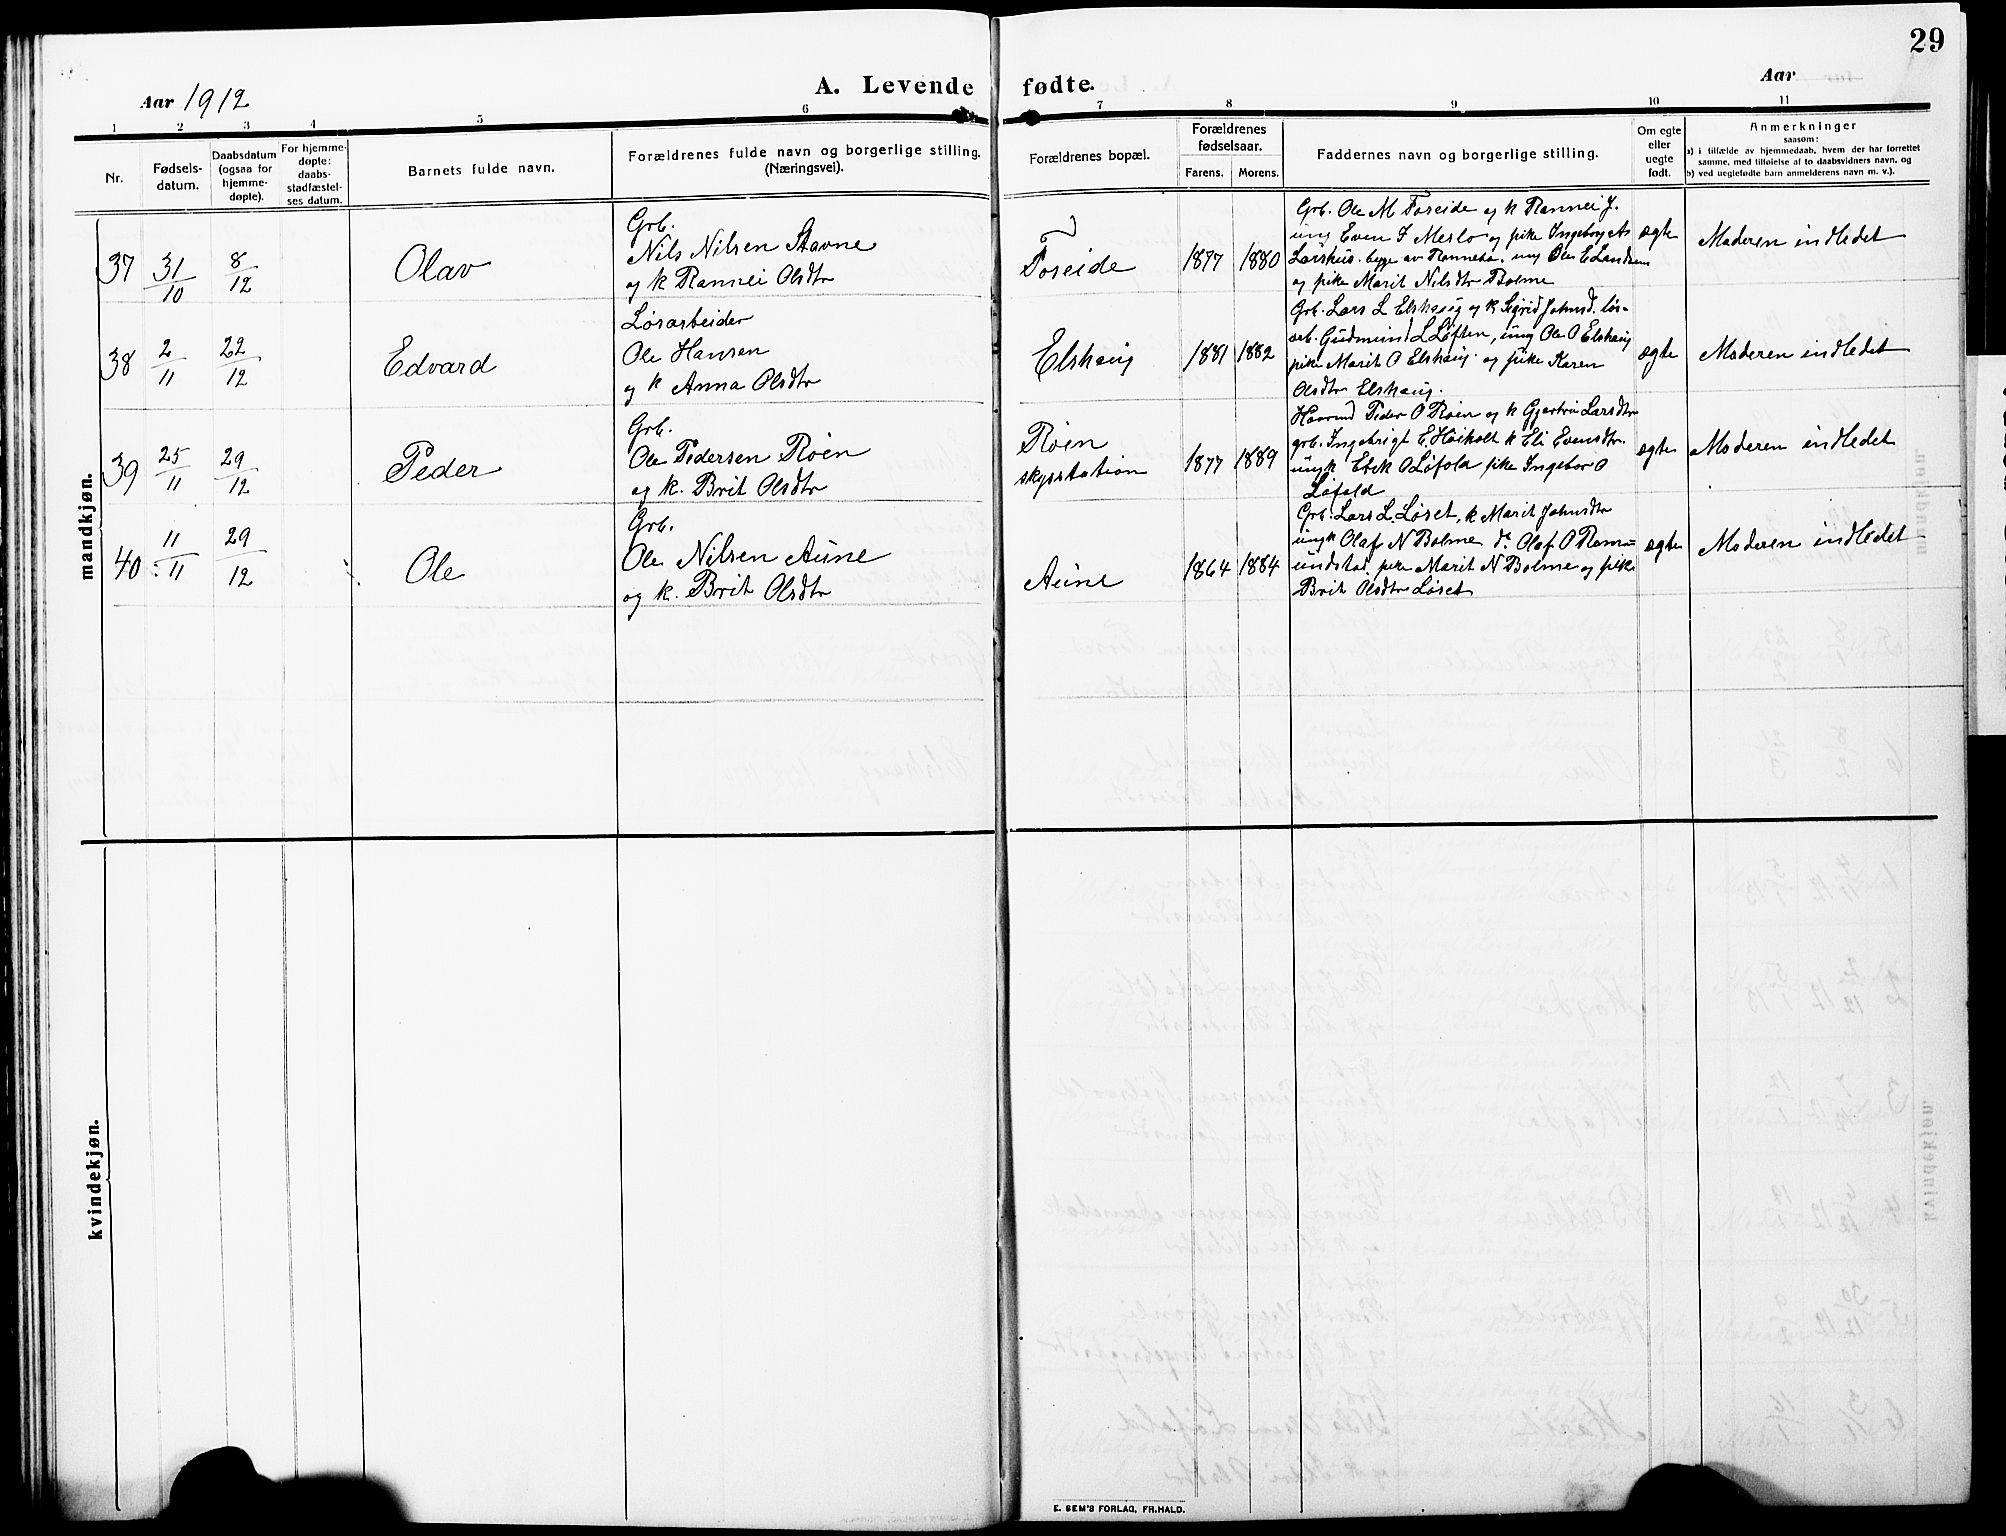 29
Aar 1912
A. Levende fødte.
Aar
1 2 3 4 5 6 7 8 9 10 11
Nr.
Fødsels-
datum.
Daabsdatum
(ogsaa for
hjemme-
døpte).
For hjemme-
døpte:
daabs-
stadfæstel-
ses datum.
Barnets fulde navn.
Forældrenes fulde navn og borgerlige stilling.
(Næringsvei).
Forældrenes bopæl.
Forældrenes
fødselsaar.
Farens. Morens.
Faddernes navn og borgerlige stilling.
Om egte
eller
uegte
født.
Anmerkninger
saasom:
a) i tilfælde av hjemmedaab, hvem der har forrettet
samme, med tilføielse af to daabsvidners navn, og
b) ved uegtefødte barn anmelderens navn m. v.).
mandkjøn.
37 31/10 8/12 Olav
Grb.
Nils Nilsen Stavne
og k Rannei Olsdtr
Foseide 1877 1880
Grb. Ole M Foseide og k Rannei J.
ung Even J Merlo og pike Ingeborg As
Larshus begge av Rennebu. ung Ole E Landrum
og pike Marit Nilsdtr Bolme
egte Moderen indledet
38 2/11 22/12 Edvard
Løsarbeider
Ole Hansen
og k Anna Olsdtr
Elshaug 1881 1882
Grb. Lars L Elshaug og k Sigrid Johnsd. løs-
arb. Gudmund L Løften, ung Ole O Elshaug
pike Marit O Elshaug og pike Karen
Olsdtr Elshaug.
egte Moderen indledet
39 25/11 29/12 Peder
Grb.
Ole Pedersen Røen
og k. Brit Olsdtr
Røen
skysstation 1877 1889
Haarmd Peder O Røen og k Gjertrui Larsdtr
grb. Ingebrigt E. Høiholt k Eli Evensdtr.
ungk O Løfald pike Ingebor O
Løfald
egte Moderen indledet
40 11/11 29/12 Ole
Grb.
Ole Nilsen Aune
og k. Brit Olsdtr
Aune 1864 1884
Grb. Lars L. Løset, k Marit Johnsdtr
ungk Olaf N Bolme do Olaf O Rom-
undstad. pike Marit N Bolme og pike
Brit Olsdtr Løset
egte Moderen indledet
kvindekjøn.
E. SEM'S FORLAG, FR.HALD.